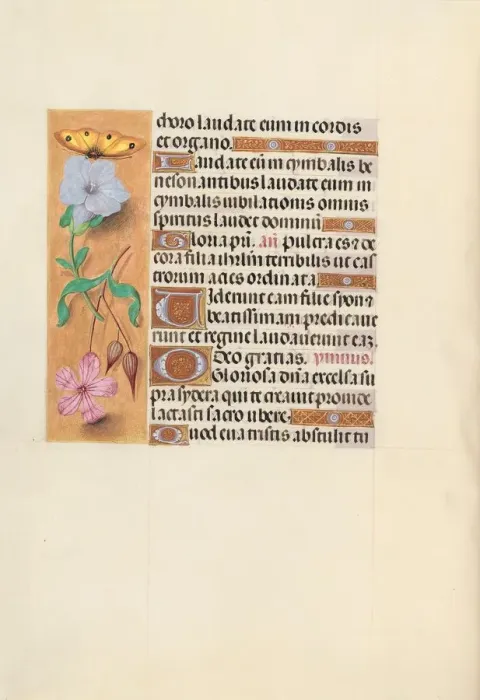 choro laudate eum in cordis
et organo.
Laudate eū in cymbalis be
nesonantibus laudate eum in
cymbalis iubilationis omnis
spiritus laudet dominū
Gloria pri. añ pulcra es ⁊ de
cora filia ihrlm terribilis ut cas
trorum acies ordinata
Uiderunt eam filie syon ⁊
beatissimam predicaue
runt et regine laudauerunt eaz.
Deo gratias. ymnus.
O Gloriosa dña excelsa su
pra sydera qui te creauit prouide
lactasti sacro ubere.
Quod eua tristis abstulit tu